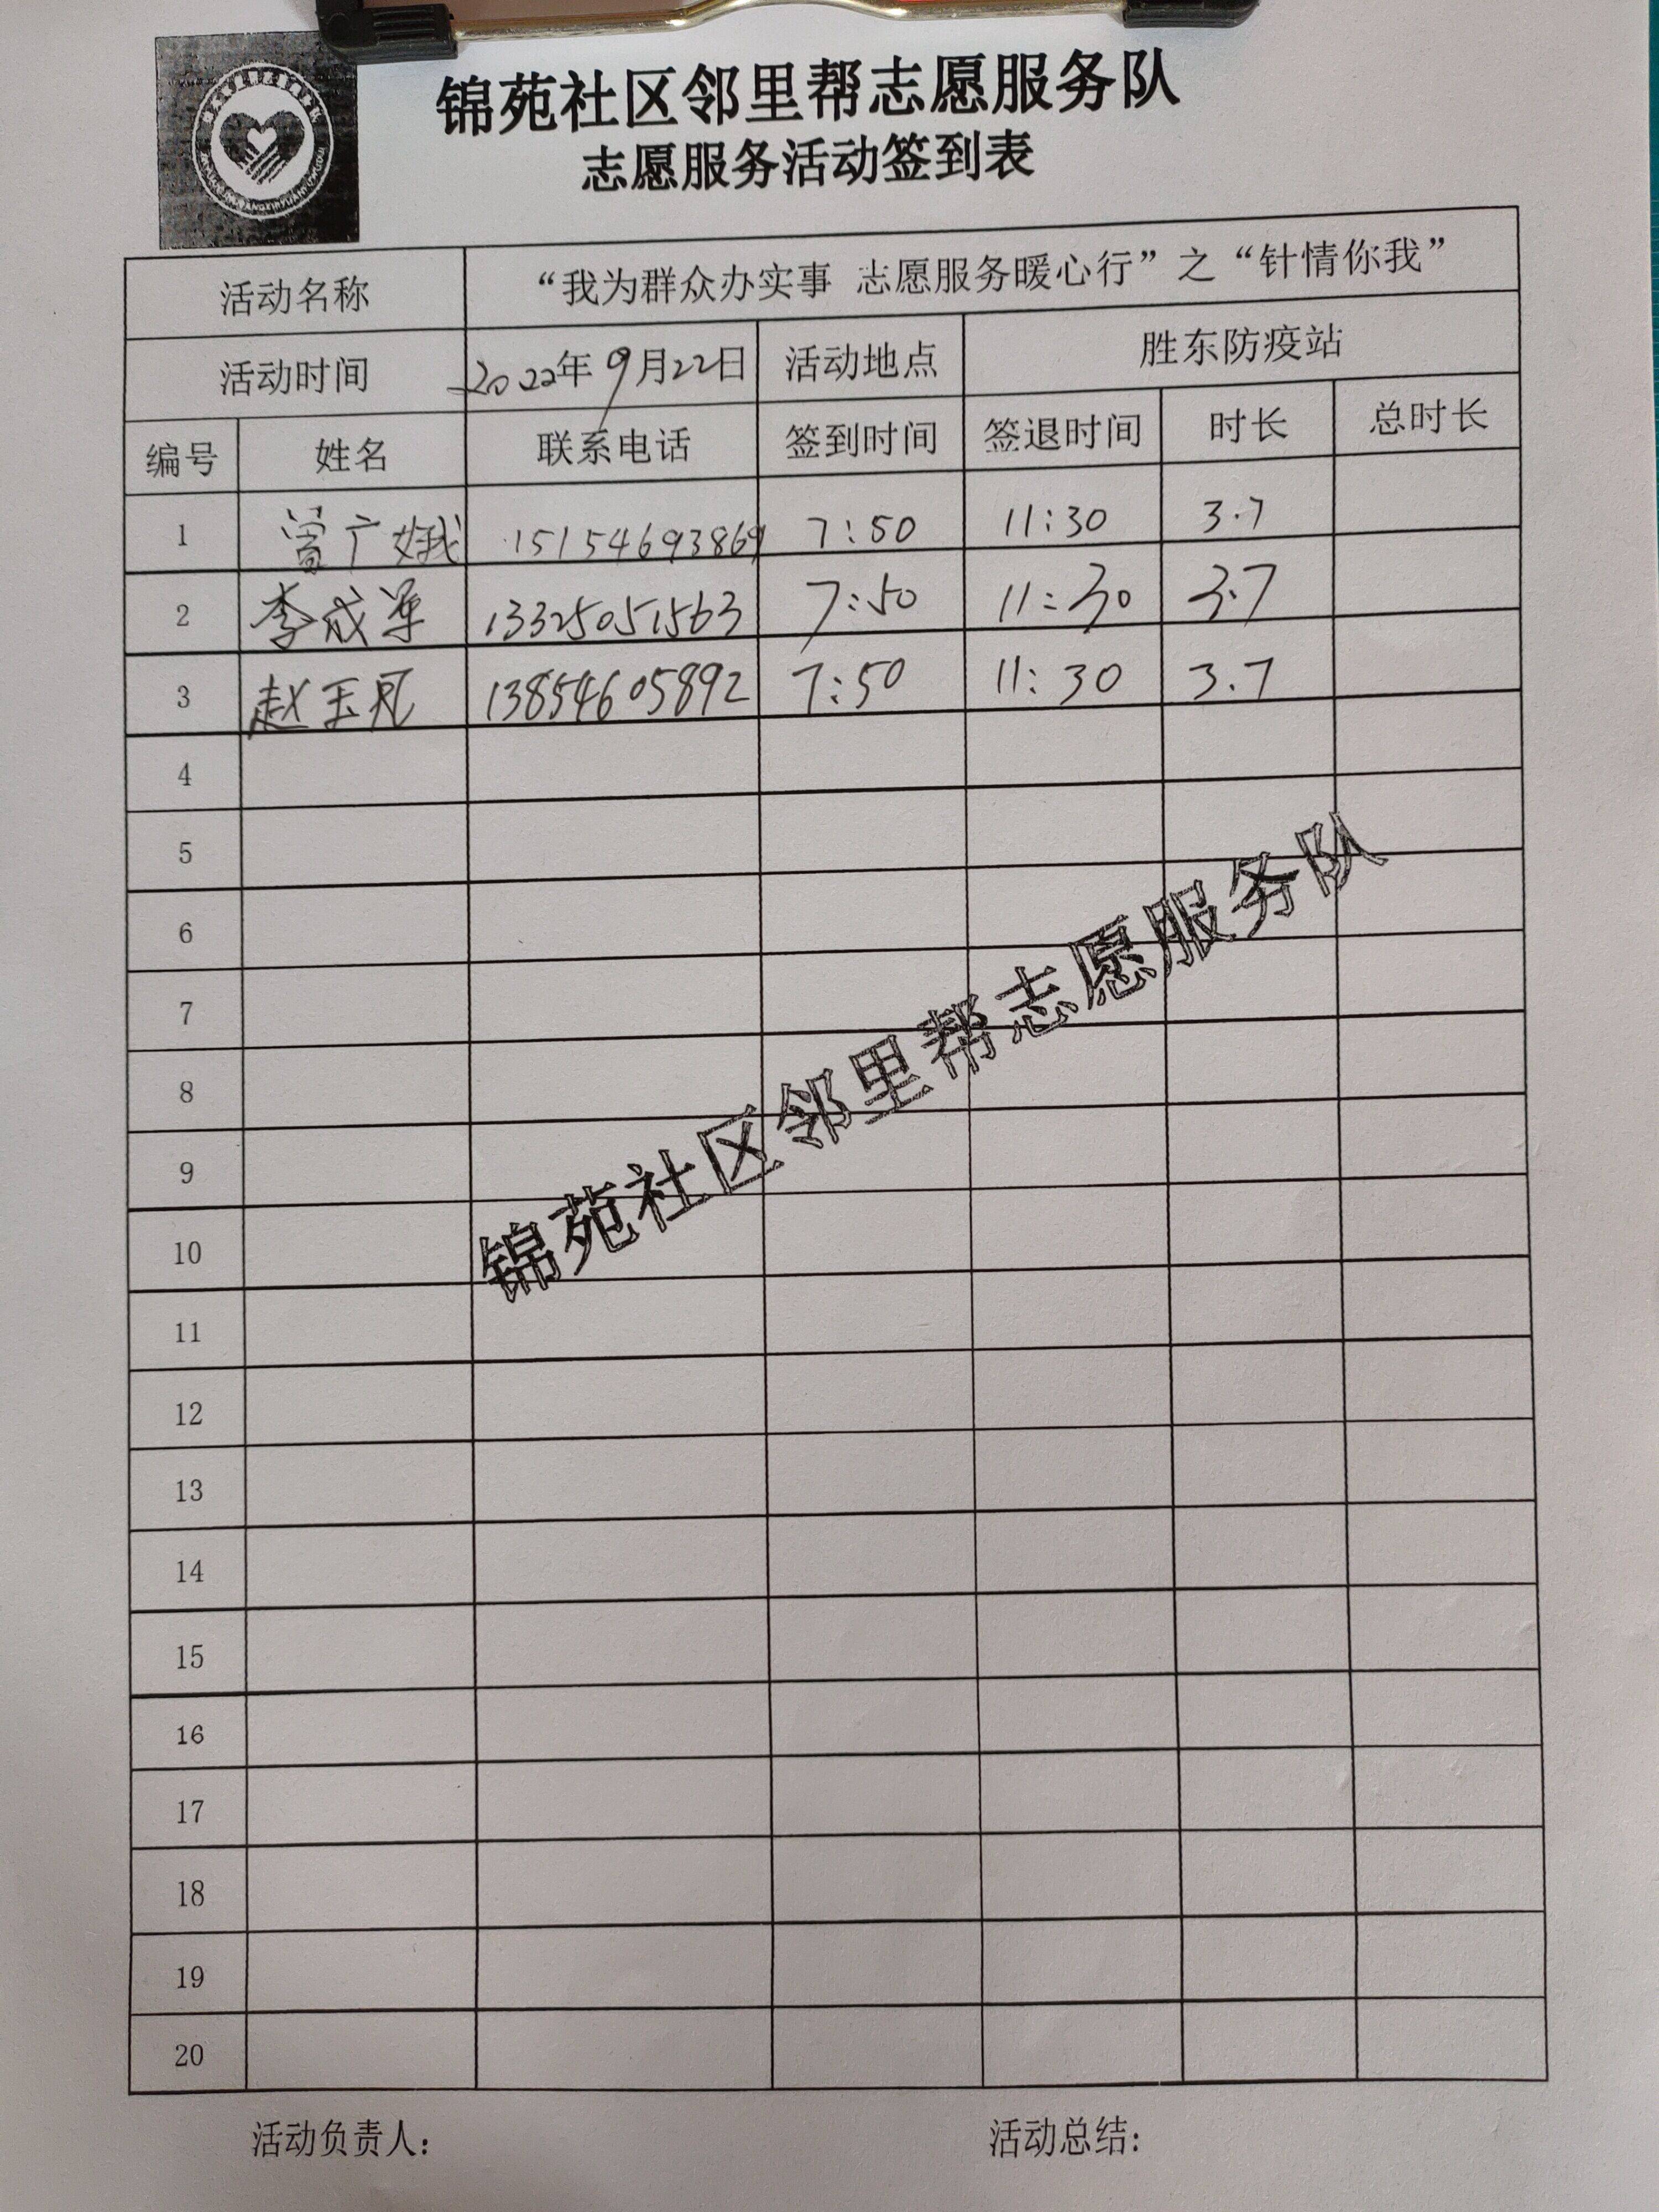 锦苑社区邻里帮志愿服务队
志愿服务活动签到表
活动名称 “我为群众办实事 志愿服务暖心行”之“针情你我”
活动时间 2022年9月22日 活动地点 胜东防疫站
编号 姓名 联系电话 签到时间 签退时间 时长 总时长
1 广娥 15154693869 7:50 11:30 3.7
2 李成军 13325051563 7:50 11:30 3.7
3 赵玉凤 13854605892 7:50 11:30 3.7
4
5
6
7
8
9
10
11
12
13
14
15
16
17
18
19
20
锦苑社区邻里帮志愿服务队
活动负责人: 活动总结: